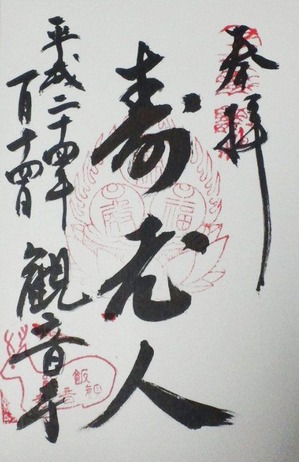 奉拝
寿老人
平成二十四年
一月十四日
観音寺
福
飯